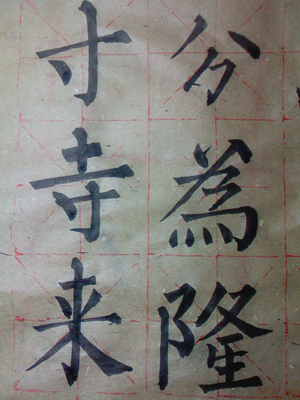 分為隆
寸寺来